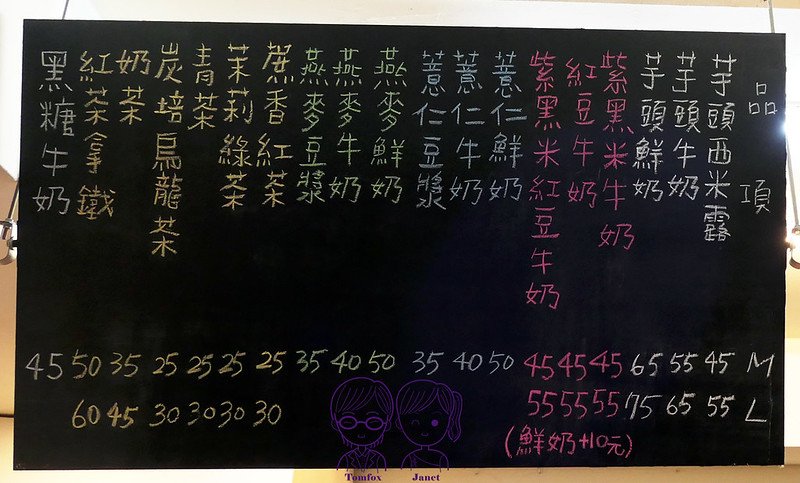 品項 M L
芋頭西米露 45 55
芋頭牛奶 55 65
芋頭鮮奶 65 75
紫黑米牛奶 45 55
紅豆牛奶 45 55
紫黑米紅豆牛奶 45 55
(鮮奶+10元)
薏仁鮮奶 50
薏仁牛奶 40
薏仁豆漿 35
燕麥鮮奶 50
燕麥牛奶 40
燕麥豆漿 35
蔗香紅茶 25 30
茉莉綠茶 25 30
青茶 25 30
炭培烏龍茶 25 30
奶茶 35 45
紅茶拿鐵 50 60
黑糖牛奶 45
Tomfox Janet